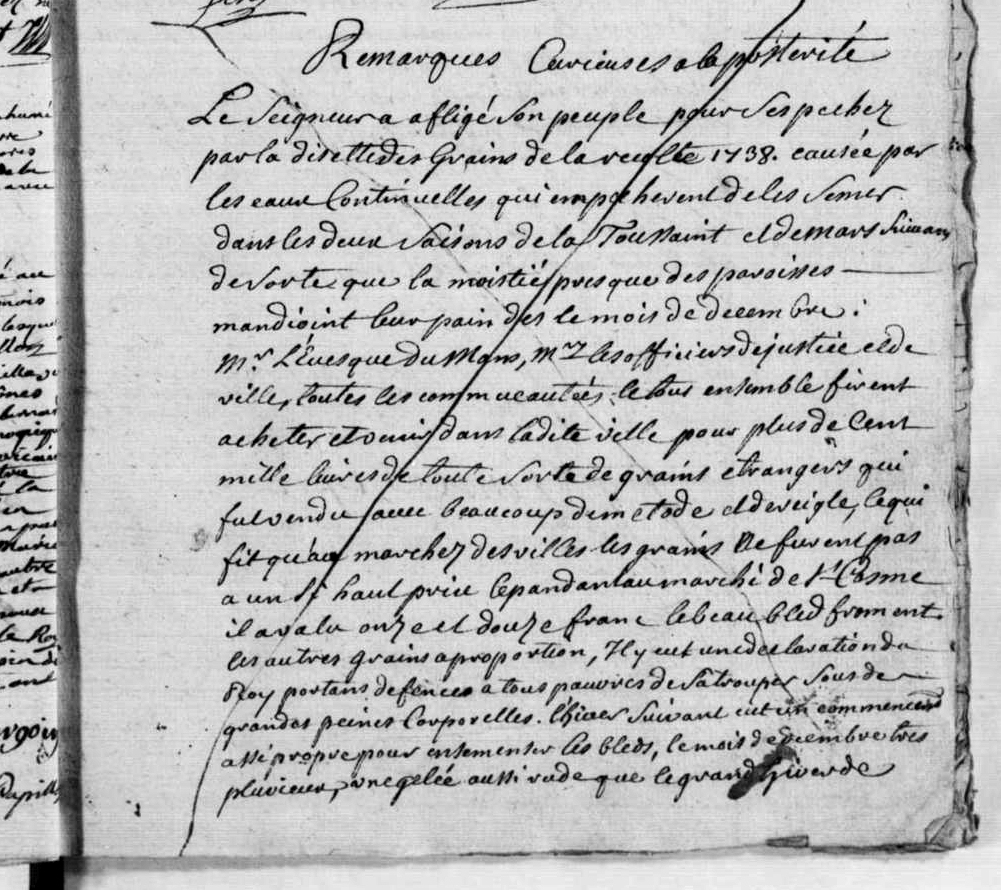 Remarques Curieuses a la posterité
Le Seigneur a afligé son peuple pour ses pechez
par la disette des Grains de la recolte 1738. causée par
les eaux Continuelles qui empecherent de les semer
dans les deux saisons de la Toussaint et de mars suivant
de sorte que la moistié presque des paroisses
mandioint leur pain des le mois de decembre.
Mr. L'Evesque du Mans, Mrs les officiers de justice et de
ville, toutes les communeautées, le tout ensemble firent
acheter et venir dans ladite ville pour plus de Cent
mille livres de toute sorte de grains etrangers qui
fut vendu avec beaucoup de metode et de reigle, ce qui
fit qu'au marchez des villes les grains ne furent pas
a un si haut prix cependant au marché de St Cosme
il a valu onze et douze franc le beau bled froment
les autres grains a proportion, Il y eut une declaration du
Roy portans defences a tous pauvres de s'atrouper sous de
grandes peines Corporelles. L'hiver suivant eut un commencemt
assé propre pour ensemenser les bleds, le mois de decembre tres
pluvieux, une gelée aussi rude que le grand hiver de